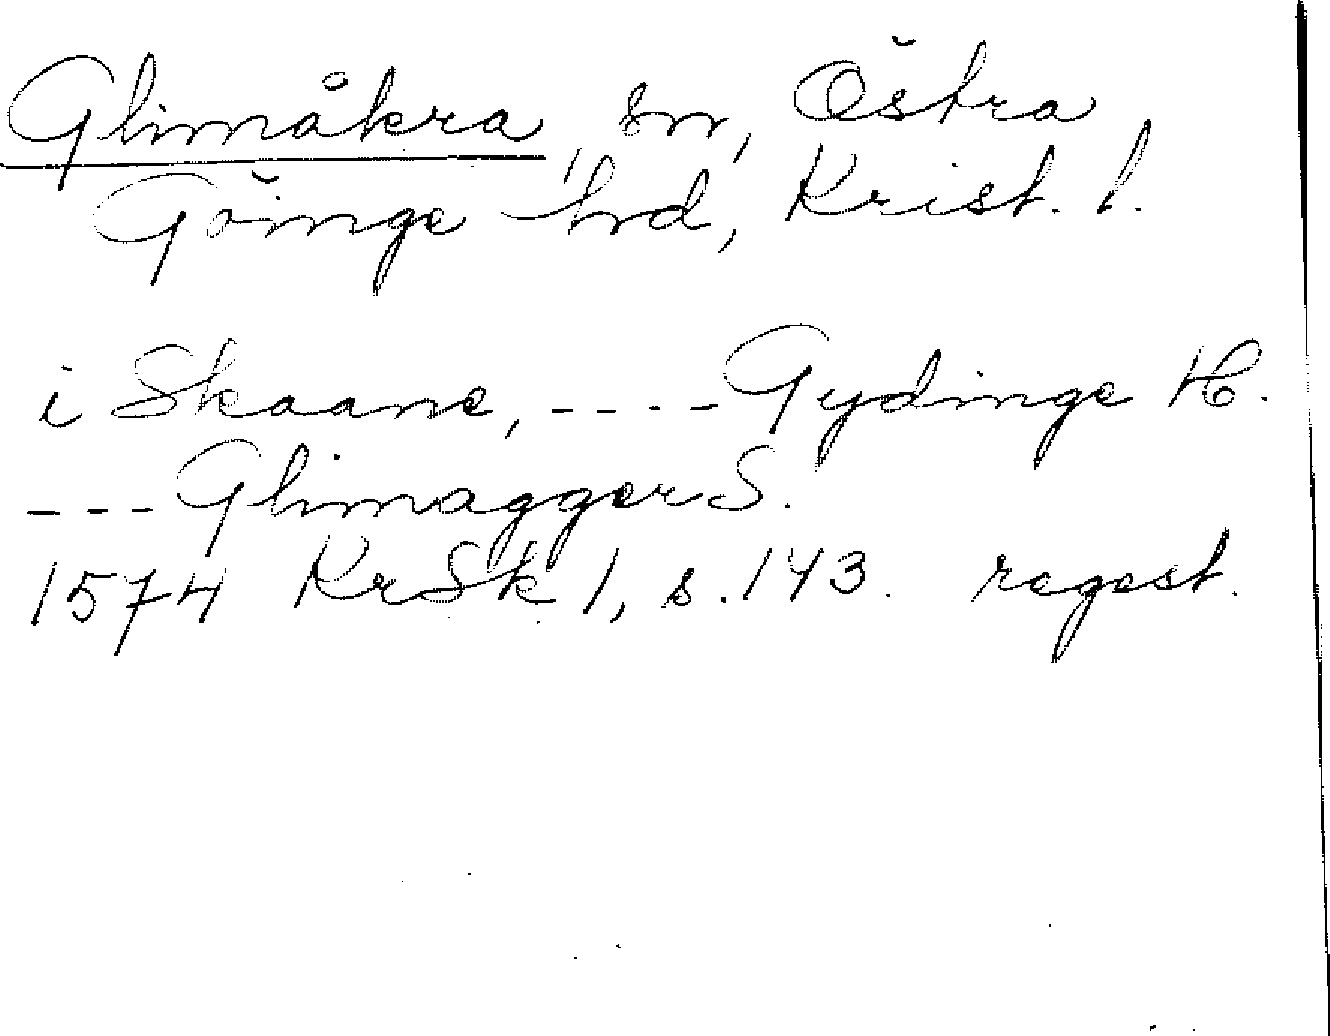 Glimåkra, sn, Östra
Göinge hd, Krist. l.
i Skaane, ---- Gydinge H.
--- Glimagger S.
1574 KrSk 1, s. 143. regest.